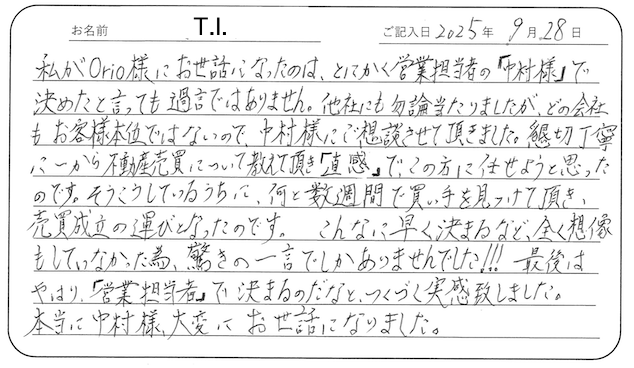 お名前 T.I. ご記入日 2025年 9月 28日
私がOrio様にお世話になったのは、とにかく営業担当者の『中村様』で
決めたと言っても過言ではありません。他社にも勿論当たりましたが、どの会社
もお客様本位ではないので、中村様にご相談させて頂きました。懇切丁寧
に一から不動産売買について教えて頂き『直感』で、この方に任せようと思った
のです。そうこうしているうちに、何と数週間で買い手を見つけて頂き、
売買成立の運びとなったのです。 こんなに早く決まるなど、全く想像
もしていなかった為、驚きの一言でしかありませんでした!!! 最後は
やはり、『営業担当者』で決まるのだなと、つくづく実感致しました。
本当に中村様、大変にお世話になりました。